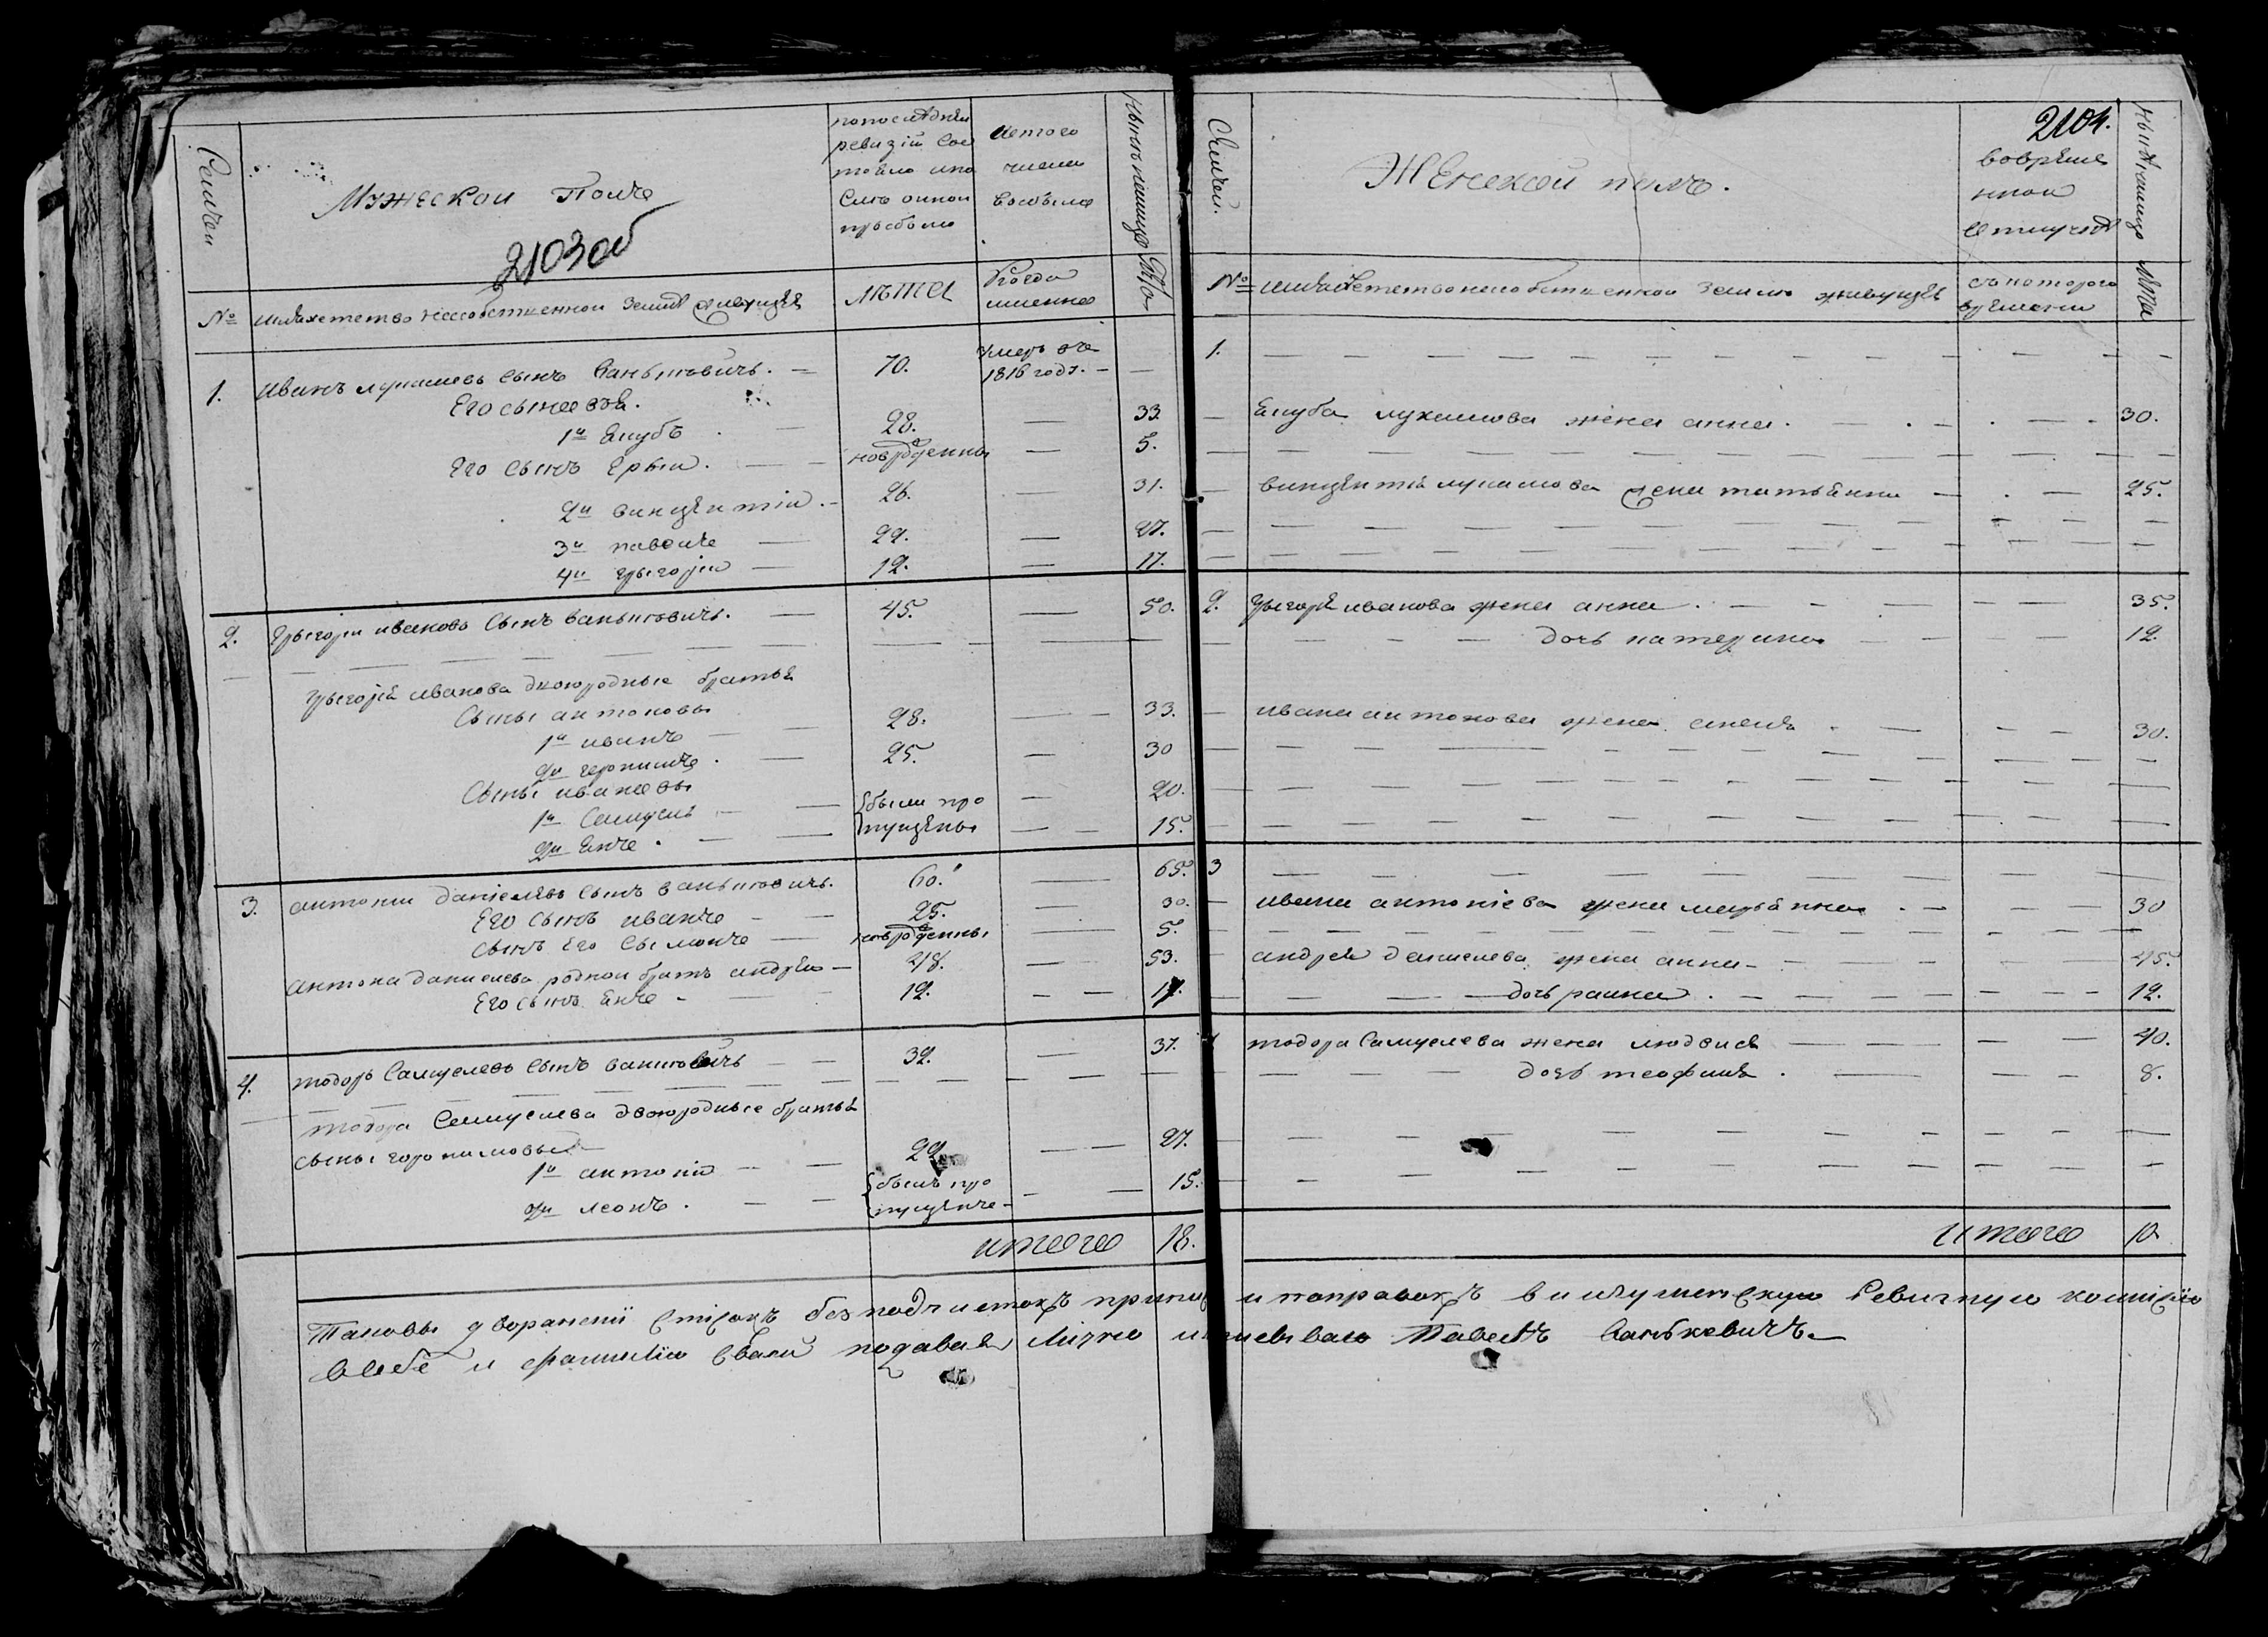 Мужескои Полъ
2103об
Семеи
попоследнеи
ревизіи Сос
тояло ипо
Слѣ оннои
прыбыло
Изтого
числа
выбыло
нынѣ налицо
№
шляхетство несобственнои Землѣ живущее
лѣта
Когда
именно
Лѣта
1.
Иванъ лукашевъ Сынъ Ваньковичъ. —
70.
Умеръ въ
1816 годѣ. —
Его сыновья.
1й Якубъ
28.
33.
Его Сынъ Ерыи.
новорожденны
5.
2й винцентіи.
26.
31.
3й павелъ
22.
27.
4й грыгории
12.
17.
2.
Грыгории ивановъ Сынъ ваньковичъ.
45.
50.
грыгория иванова двоюродные братья
Сыны антоновы
1й иванъ
28.
33.
2й геронимъ
25.
30
Сыны ивановы
1й Самуель
были про
20.
2й Янъ.
пущены
15.
3.
антонии даніелевъ Сынъ ваньковичъ.
60.
65.
Его Сынъ иванъ
25.
30.
Сынъ Его Сымонъ
новорожденны
5.
антона даниелева роднои братъ андреи
48.
53.
Его Сынъ Янъ
12.
17.
4.
тодоръ Самуелевъ Сынъ ваньковичъ
32.
37.
тодора Самуелева двоюродные братья
сыны геронимовы
1й антонии
22.
27.
2й леонъ.
былъ про
15.
пущенъ
итого
18.
Женскои полъ.
2104.
Семеи.
вовреме
ннои
Отлучкѣ
ныне налицо
№
шляхетство несобственнои Землю живущее
съкоторого
времени
Лѣта
1.
Якуба лукашова жена анна.
30.
винцентия лукашова жена татьянна
25.
2.
грыгоря иванова жена анна.
35.
дочь катерина
12.
ивана антонова жена анеля
30.
3
ивана антоніева жена марьянна
30
андрея даниелева жена анна
45.
дочь раина.
12.
тодора Самуелева жена людвися
40.
дочь теофиля.
8.
итого
10.
Таковы дворанскіи Списокъ без подчистокъ припи и поправокъ в игуменскую Ревизную комисію
о себе и фамилии Своеи подавая Лично подписываю Павелъ Ванькевичъ.